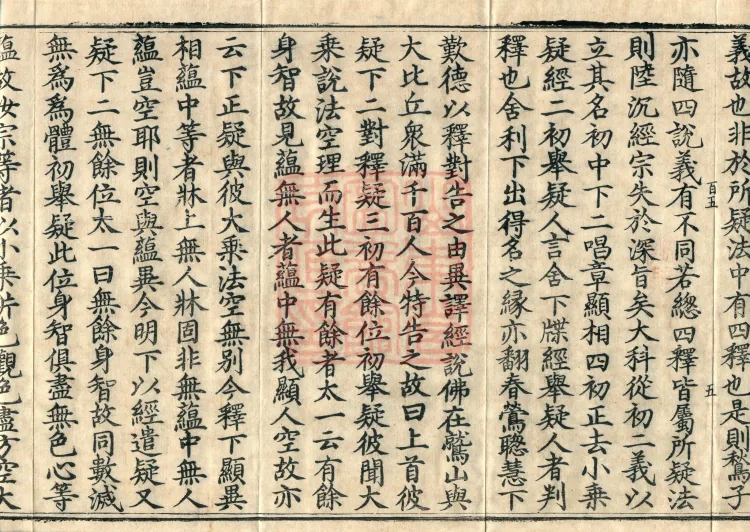 義故也非於所疑法中有四釋也是則鶖子
亦隨四說義有不同若總四釋皆屬所疑法
則陸沉經宗失於深旨矣大科從初二義以
立其名初中下二唱章顯相四初正去小乗
疑經二初舉疑人言舍下牒經舉疑人者判
釋也舍利下出得名之縁亦翻春鶯聰慧下
歎德以釋對告之由異譯經說佛在鷲山與
大比丘衆滿千百人今特告之故曰上首彼
疑下二對釋疑三初有餘位初舉疑彼聞大
乗說法空理而生此疑有餘者太一云有餘
身智故見蘊無人者蘊中無我顯人空故亦
云下正疑與彼大乗法空無别今釋下顯異
相蘊中等者牀上無人牀固非無蘊中無人
蘊豈空耶則空與蘊異今明下以經遣疑又
疑下二無餘位太一曰無餘身智故同數滅
無爲爲體初舉疑此位身智俱盡無色心等
蘊故汝宗等者以小乗析色觀色盡方空大
百五
五